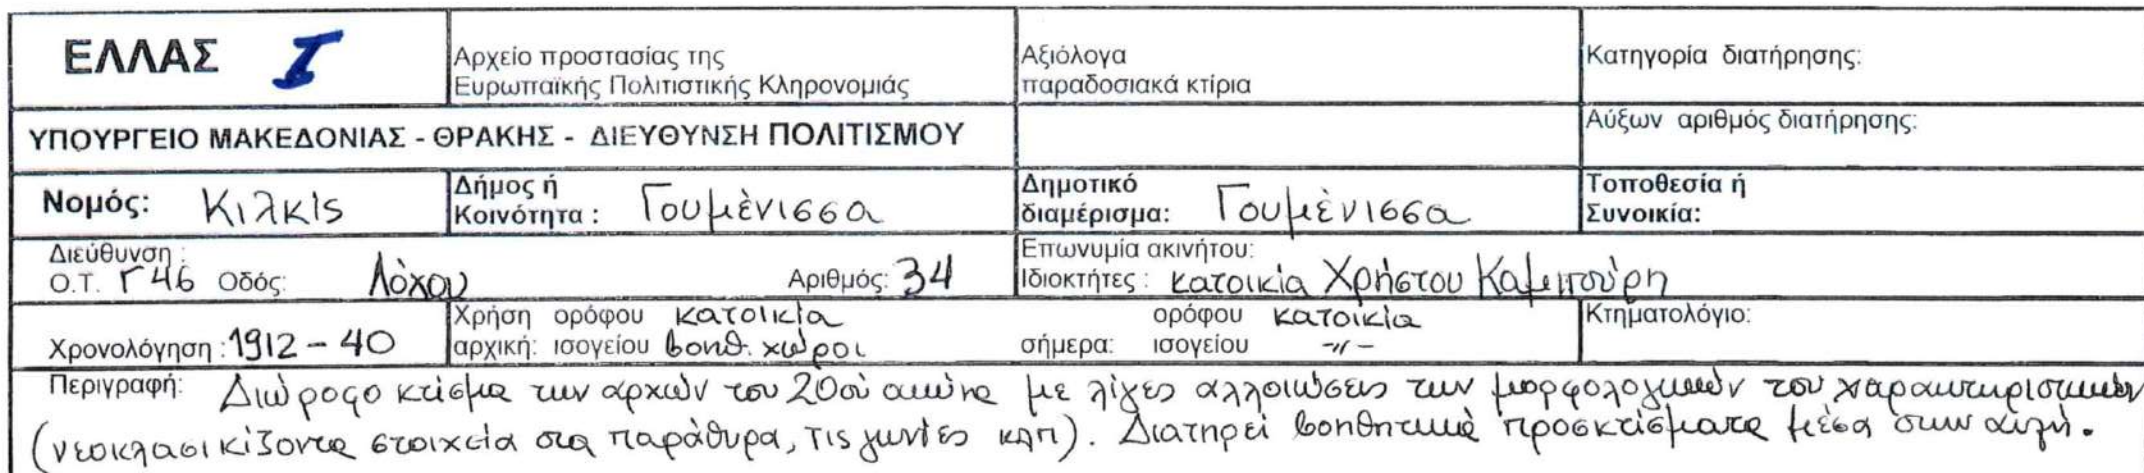 ΕΛΛΑΣ I
Αρχείο προστασίας της
Ευρωπαϊκής Πολιτιστικής Κληρονομιάς
Αξιόλογα
παραδοσιακά κτίρια
Κατηγορία διατήρησης:
ΥΠΟΥΡΓΕΙΟ ΜΑΚΕΔΟΝΙΑΣ - ΘΡΑΚΗΣ - ΔΙΕΥΘΥΝΣΗ ΠΟΛΙΤΙΣΜΟΥ
Αύξων αριθμός διατήρησης:
Νομός: Κιλκίς
Δήμος ή
Κοινότητα : Γουμένισσα
Δημοτικό
διαμέρισμα: Γουμένισσα
Τοποθεσία ή
Συνοικία:
Διεύθυνση :
Ο.Τ. Γ46 Οδός: Λόχου Αριθμός: 34
Επωνυμία ακινήτου:
Ιδιοκτήτες : κατοικία Χρήστου Καμπούρη
Χρονολόγηση : 1912 - 40
Χρήση ορόφου κατοικία
αρχική: ισογείου βοηθ. χώροι
ορόφου κατοικία
σήμερα: ισογείου -〃-
Κτηματολόγιο:
Περιγραφή: Διώροφο κτίσμα των αρχών του 20ού αιώνα με λίγες αλλοιώσεις των μορφολογικών του χαρακτηριστικών
(νεοκλασικίζοντα στοιχεία στα παράθυρα, τις γωνίες κλπ). Διατηρεί βοηθητικά προσκτίσματα μέσα στην αυλή.